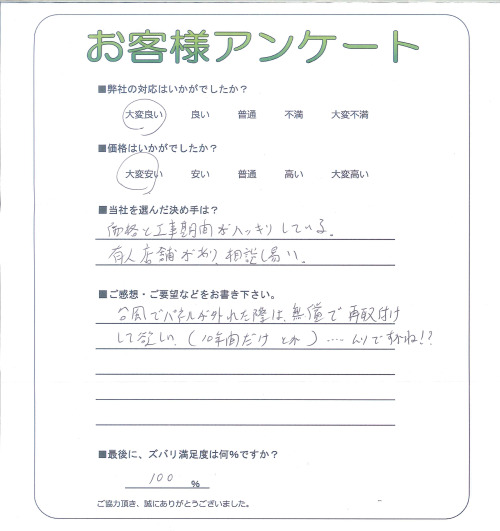 お客様アンケート
■弊社の対応はいかがでしたか？
大変良い 良い 普通 不満 大変不満
■価格はいかがでしたか？
大変安い 安い 普通 高い 大変高い
■当社を選んだ決め手は？
価格と工事期間がハッキリしている。
有人店舗があり、相談し易い。
■ご感想・ご要望などをお書き下さい。
台風でパネルが外れた際は、無償で再取付け
して欲しい。(10年間だけとか)‥‥ ムリですかね!?
■最後に、ズバリ満足度は何%ですか？
100 %
ご協力頂き、誠にありがとうございました。